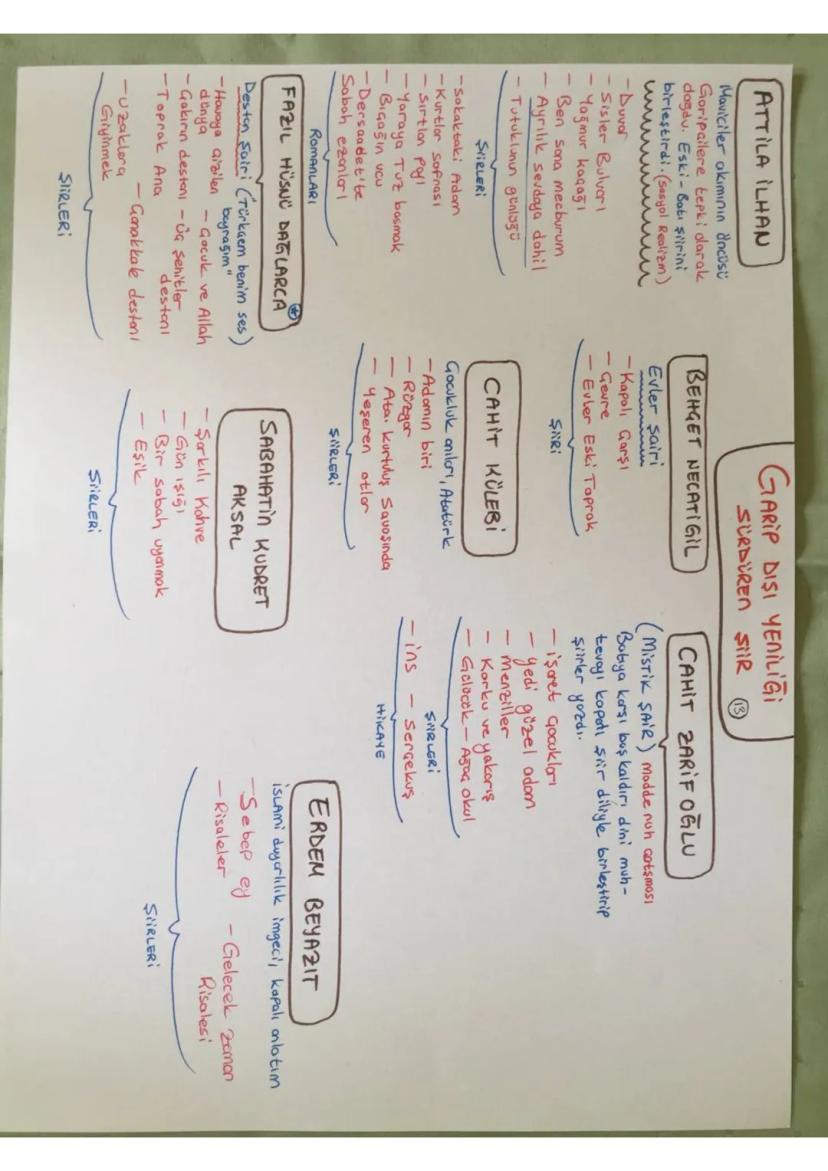 GARİP DIŞI YENİLİĞİ
SÜRDÜREN ŞİİR 13
ATTİLA İLHAN
Maviciler akımının öncüsü
Garipçilere tepki olarak
doğdu. Eski - Batı şiirini
birleştirdi. (Sosyal Realizm)
- Duvar
- Sisler Bulvarı
- Yağmur kaçağı
- Ben sana mecburum
- Ayrılık sevdaya dahil
- Tutuklunun günlüğü
ŞİİRLERİ
- Sokaktaki Adam
- Kurtlar sofrası
- Sırtlan payı
- Yaraya Tuz basmak
- Bıçağın ucu
- Dersaadet'te
Sabah ezanları
ROMANLARI
FAZIL HÜSNÜ DAĞLARCA
Destan Şairi ("Türkçem benim ses
bayrağım")
- Havaya çizilen - Çocuk ve Allah
dünya
- Çakırın destanı - Üç Şehitler
- Toprak Ana destanı
- Uzaklara - Çanakkale destanı
Giyinmek
ŞİİRLERİ
BEHÇET NECATİGİL
Evler Şairi
- Kapalı Çarşı
- Çevre
- Evler Eski Toprak
ŞİİRİ
CAHİT KÜLEBİ
Çocukluk anıları, Atatürk
- Adamın biri
- Rüzgar
- Ata. kurtuluş Savaşında
- Yeşeren otlar
ŞİİRLERİ
SABAHATİN KUDRET
AKSAL
- Şarkılı Kahve
- Gün ışığı
- Bir sabah uyanmak
- Eşik
ŞİİRLERİ
CAHİT ZARİFOĞLU
(MİSTİK ŞAİR) madde ruh çatışması
Batıya karşı baş kaldırı, dini muh-
tevayı kapalı şiir diliyle birleştirip
şiirler yazdı.
- işaret çocukları
- yedi güzel adam
- menziller
- Korku ve yakarış
- Gülücük - Ağaç okul
ŞİİRLERİ
- ins - serçekuş
HİKAYE
ERDEM BEYAZIT
İSLAMİ duyarlılık imgeci, kapalı anlatım
- Sebep ey - Gelecek zaman
- Risaleler Risalesi
ŞİİRLERİ